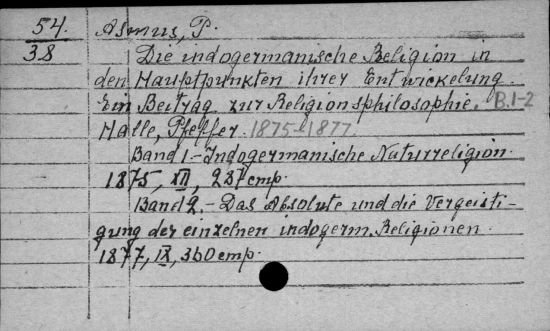 54.
38
Asmus, P.
Die indogermanische Religion in
den Hauptpunkten ihrer Entwickelung.
Ein Beitrag zur Religionsphilosophie. B.1-2
Halle, Pfeffer. 1875-1877.
Band 1.- Indogermanische Naturreligion.
1875, XII, 287 стр.
Band 2. - Das Absolute und die Vergeisti-
gung der einzelnen indogerm. Religionen.
1877, IX, 360 стр.